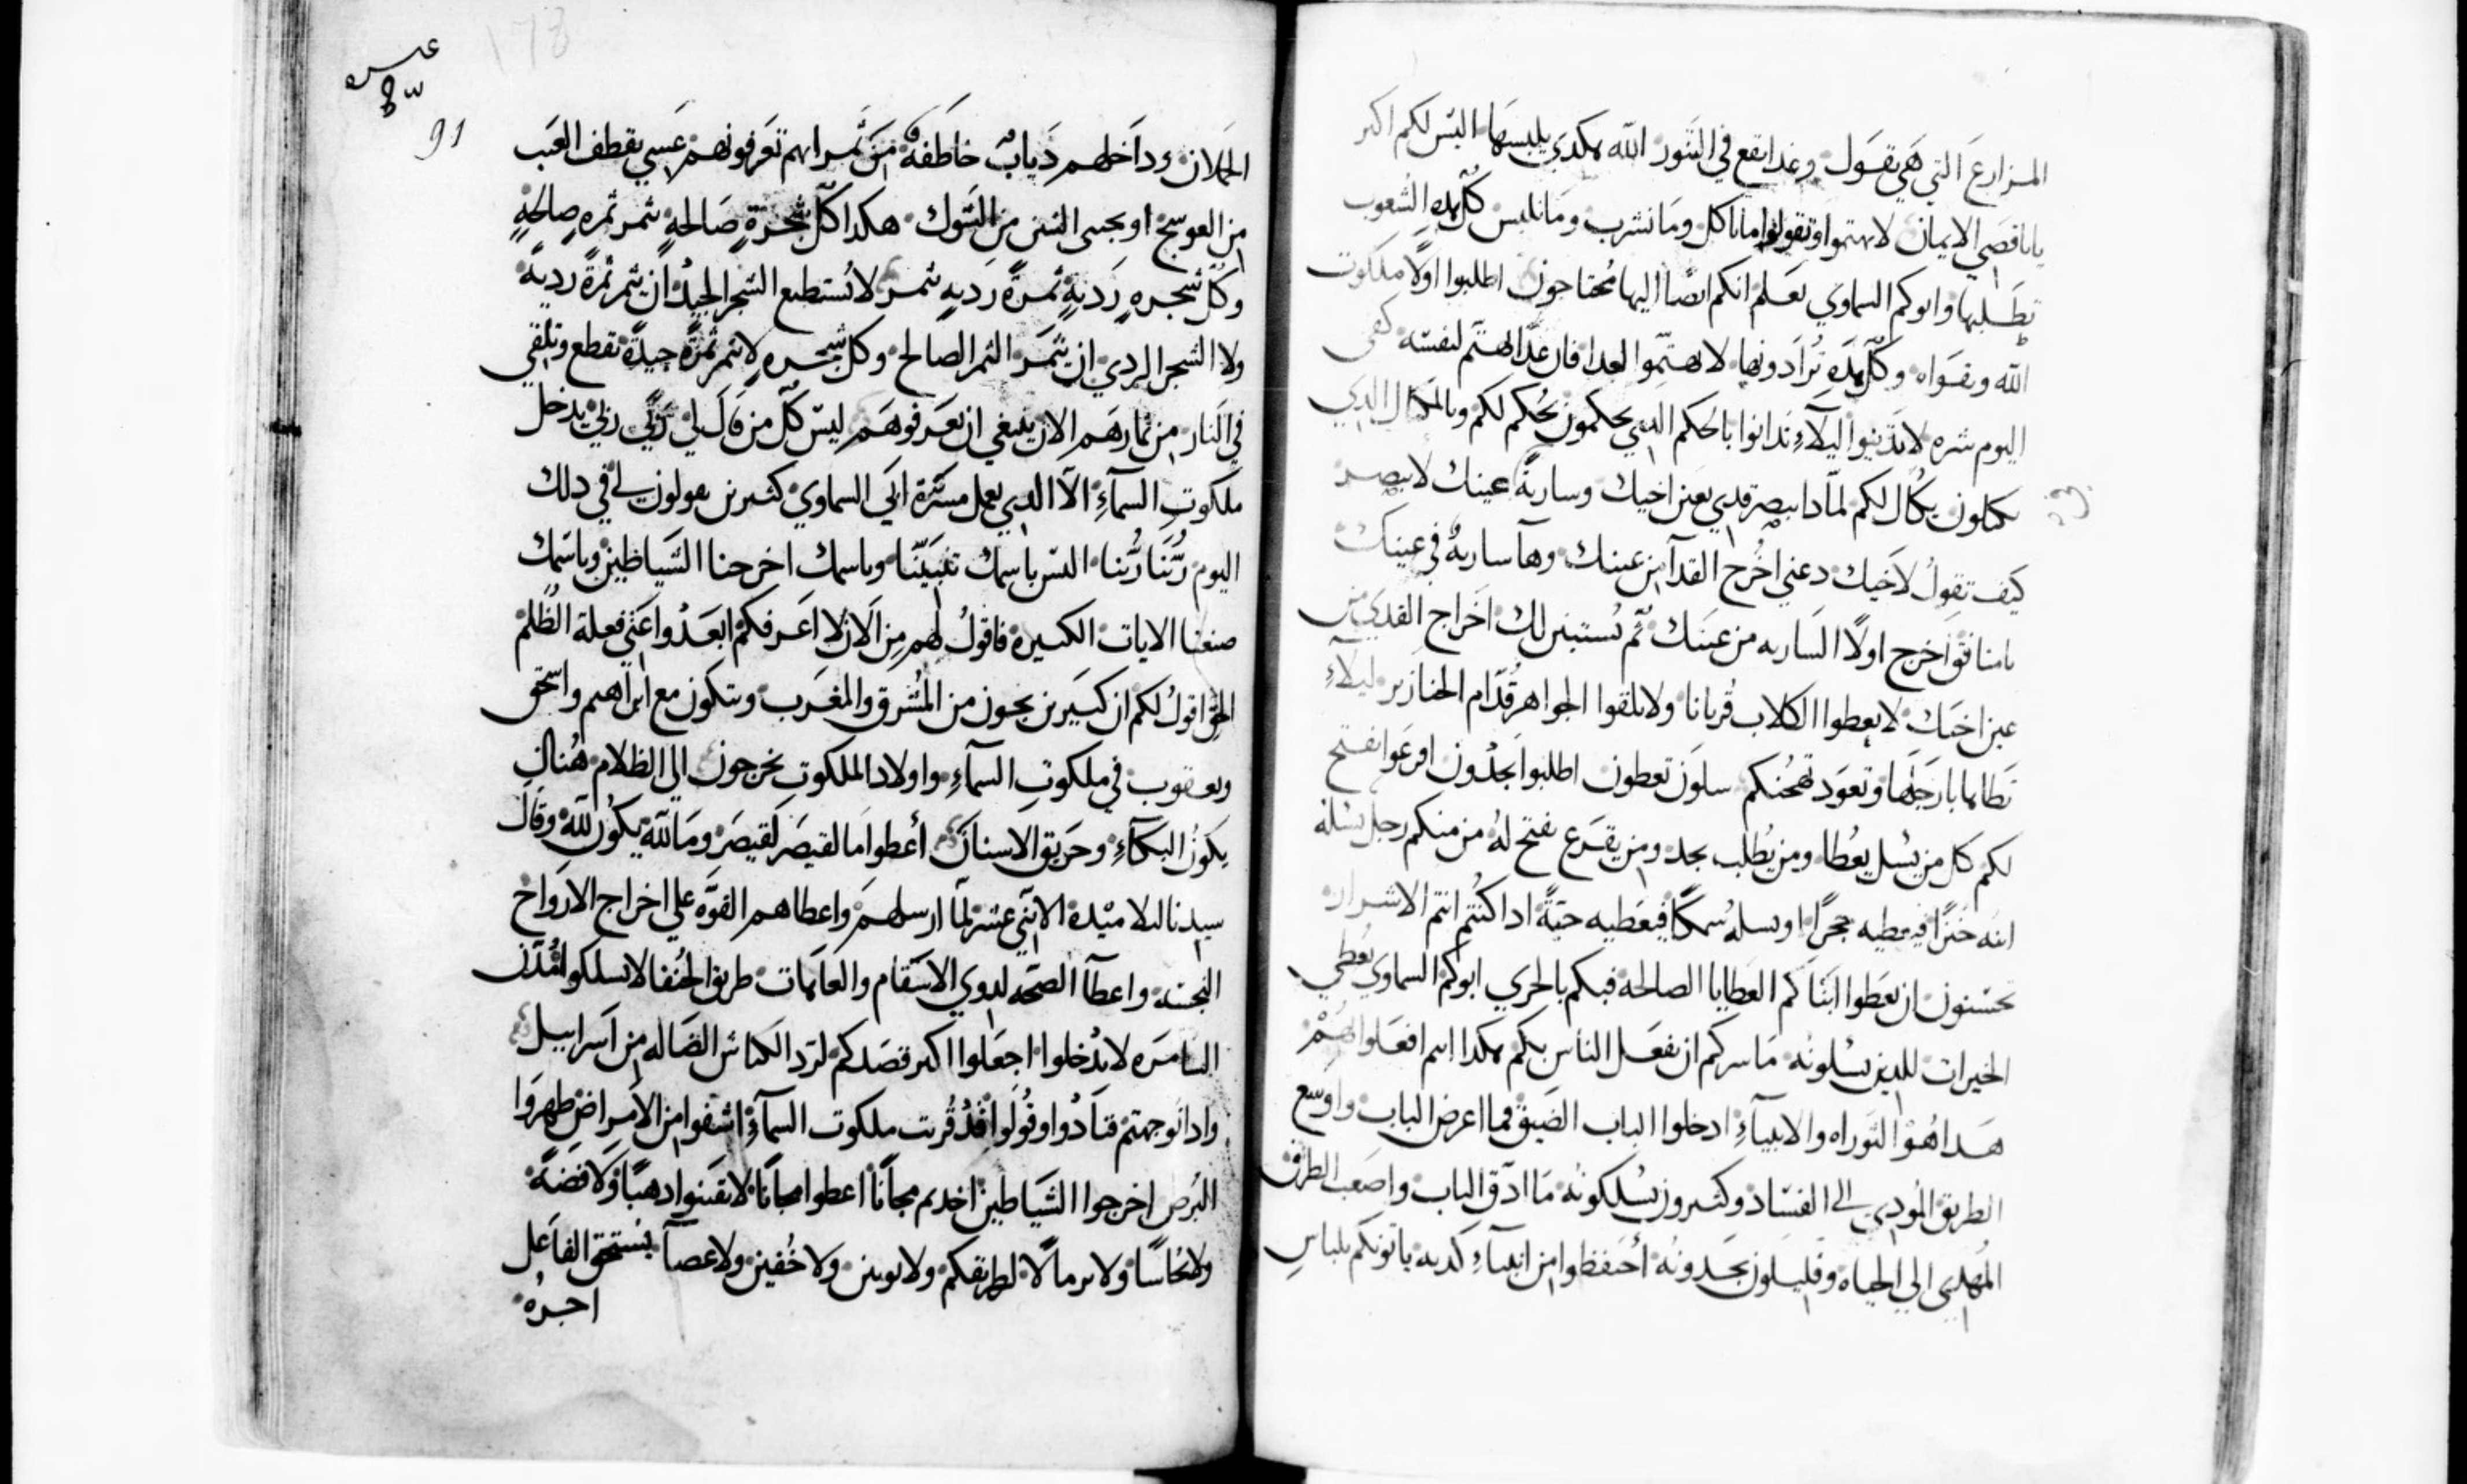 المزارع التي هي تقول وغدا تقع في التنور الله هكدى يلبسها اليس لكم اكبر
يا ناقصي الايمان لا تهتموا وتقولوا ما ناكل وما نشرب وما نلبس كل هده الشعوب
تطلبها وابوكم السماوي يعلم انكم ايضًا اليها محتاجون اطلبوا اولًا ملكوت
الله وتقواه وكل هده تزادونها لا تهتموا لغدا فان غدا يهتم لنفسه كفى
اليوم شره لا تدينوا ليلآء تدانوا بالحكم الدي تحكمون يحكم لكم وبالمكيال الدي
تكيلون يكال لكم لمادا تبصر قدي بعين اخيك وسارية عينك لا تبصر
كيف تقول لاخيك دعني اخرج القدا من عينك وها ساريه في عينك
يا منافق اخرج اولًا الساريه من عينك ثم تستبين لك اخراج القدي من
عين اخيك لا تعطوا الكلاب قربانا ولا تلقوا الجواهر قدام الخنازير ليلآء
تطاها بارجلها وتعود تهحنكم سلون تعطون اطلبوا تجدون اقرعوا نفتح
لكم كل من يسل يعطا ومن يطلب يجد ومن يقرع نفتح له من منكم رجل يسله
ابنه خبزًا فيعطيه حجرًا او يسله سمكًا فيعطيه حيةً ادا كنتم انتم الاشرار
تحسنون ان تعطوا ابناكم العطايا الصالحه فبكم بالحري ابوكم السماوي يعطي
الخيرات للدين يسلونه ما سركم ان يفعل الناس بكم هكدا انتم افعلوا بهم
هدا هو التوراه والانبيآء ادخلوا الباب الضيق فما اعرض الباب واوسع
الطريق المودي الى الفساد وكثيرون يسلكونه ما ادق الباب واصعب الطريق
المهدي الي الحياه وقليلون يجدونه احتفظوا من انبيآء كدبه ياتونكم بلباس
91
الحملان وداخلهم دياب خاطفه من ثمراتهم تعرفونهم عسي يقطف العنب
من العوسج او يجنى التين من الشوك هكدا كل شجرة صالحة تثمر ثمره صالحة
وكل شجره ردية ثمرة رديه تثمر لا تستطيع الشجر الجيد ان يثمر ثمرة ردية
ولا الشجر الردي ان يثمر الثمر الصالح وكل شجره لا تثمر ثمرة جيدة تقطع وتلقي
في النار من ثمارهم الان ينبغي ان تعرفوهم ليس كل من قال لي ربي ربي يدخل
ملكوت السمآء الا الدي يعمل مسرة ابي السماوي كثيرين يقولون لي في دلك
اليوم ربنا ربنا اليس باسمك تنبينا وباسمك اخرجنا الشياطين وباسمك
صنعنا الايات الكبيرة فاقول لهم من الازل لا اعرفكم ابعدوا عني فعلة الظلم
الحق اقول لكم ان كثيرين يجون من المشرق والمغرب ويتكون مع ابراهيم واسحق
ويعقوب في ملكوت السمآء واولاد الملكوت يخرجون الى الظلام هناك
يكون البكآء وحريق الاسنان أعطوا ما لقيصر لقيصر وما لله يكون لله وقال
سيدنا لتلاميده الاثني عشر لما ارسلهم واعطاهم القوه على اخراج الارواح
النجسه واعطآ الصحه لدوي الاسقام والعاهات طريق الحنفا لا تسلكوا مدن
السامره لا تدخلوا اجعلوا اكبر قصدكم لرد الكباش الضاله من اسراييل
وادا توجهتم فنادوا وقولوا قد قربت ملكوت السمآء اشفوا من الامراض طهروا
البرص اخرجوا الشياطين اخدتم مجانًا اعطوا مجانًا لا تقتنوا دهبًا ولا فضةً
ولا نحاسًا ولا برمالًا لطريقكم ولا ثوبين ولا خفين ولا عصا يستحق الفاعل
اجره